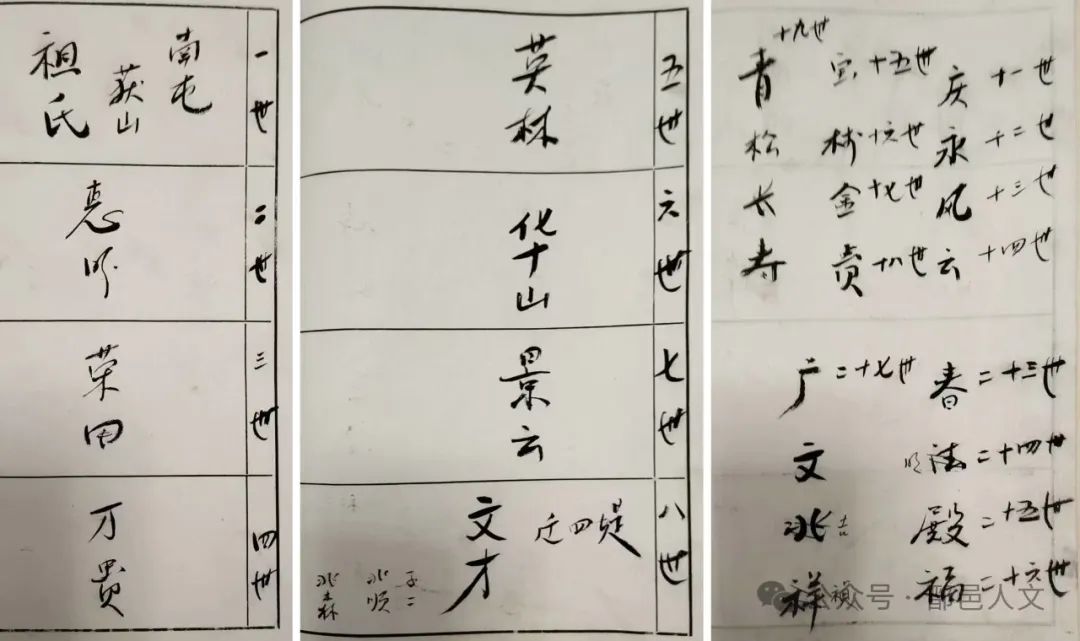 一世
南屯
获山
祖氏
二世
惠
三世
荣田
四世
万贵
五世
英林
六世
华山
七世
景云
八世
迁四堤
文才
子二
兆顺
兆森
庆 十一世
永 十二世
风 十三世
云 十四世
宝 十五世
树 十六世
金 十七世
贵 十八世
十九世
青
松
长
春
春 二十三世
法 二十四世
殿 二十五世
福 二十六世
广 二十七世
文
兆
祥
公众号 · 鄑邑人文